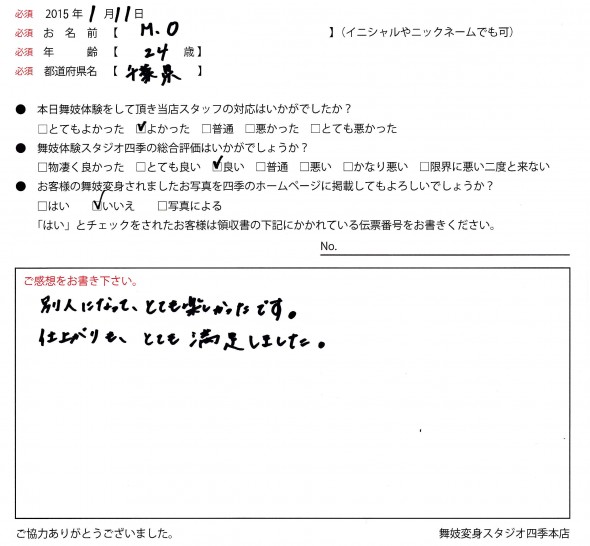 必須 2015年 1月11日
必須 お名前【 M.O 】(イニシャルやニックネームでも可)
必須 年齢【 24 歳】
必須 都道府県名【 県 】
● 本日舞妓体験をして頂き当店スタッフの対応はいかがでしたか?
□とてもよかった ☑よかった □普通 □悪かった □とても悪かった
● 舞妓体験スタジオ四季の総合評価はいかがでしょうか?
□物凄く良かった □とても良い ☑良い □普通 □悪い □かなり悪い □限界に悪い二度と来ない
● お客様の舞妓変身されましたお写真を四季のホームページに掲載してもよろしいでしょうか?
□はい ☑いいえ □写真による
「はい」とチェックをされたお客様は領収書の下記にかかれている伝票番号をお書きください。
No.
ご感想をお書き下さい。
別人になって、とても楽しかったです。
仕上がりも、とても満足しました。
ご協力ありがとうございました。 舞妓変身スタジオ四季本店